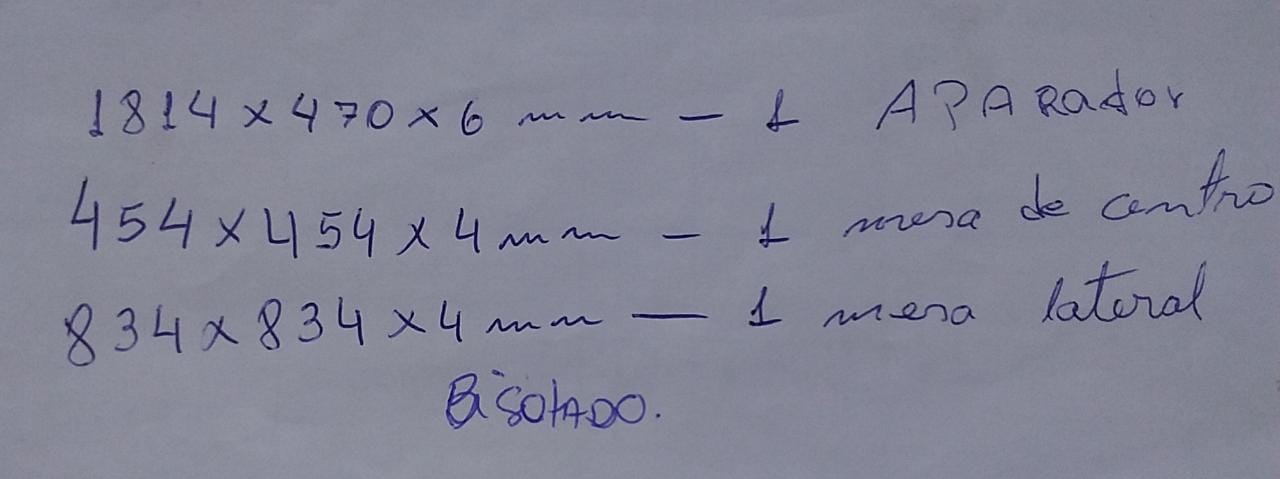 1814 x 470 x 6 mm - 1 APARador
454 x 454 x 4 mm - 1 mesa de centro
834 x 834 x 4 mm - 1 mesa lateral
BisotADO.